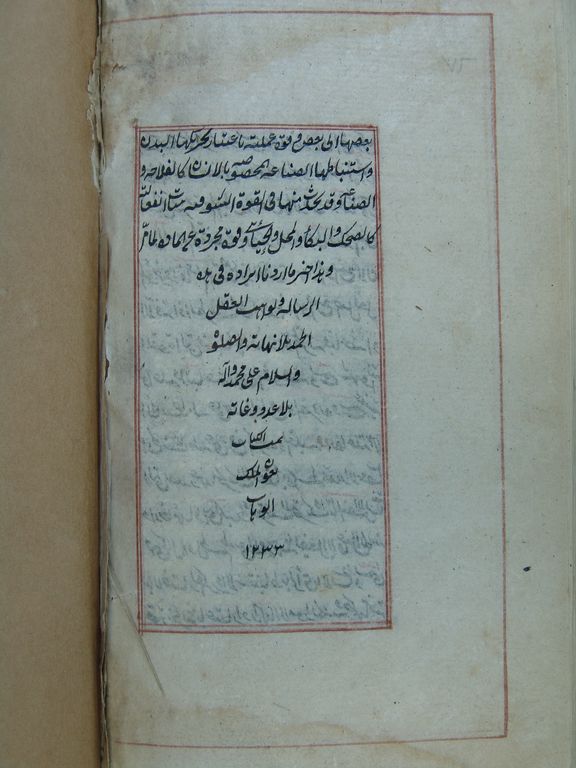 بعضها الى بعض وقوة عملية باعتبار تحريكها البدن
واستنباطها الصناعة المخصوصة بالانسان كالفلاحة و
الصناعة وقد يحدث منها فى القوة الشوقية هيئات انفعالية
كالضحك والبكاء والخجل والحياء وقوة مجردة عن المادة
وهذا اخر ما اردنا ايراده فى هذه
الرسالة ولواهب العقل
الحمد بلا نهاية والصلوة
والسلام على محمد وآله
بلا عدد وغاية
تمت الكتاب
بعون الملك
الوهاب
١٢٣٣